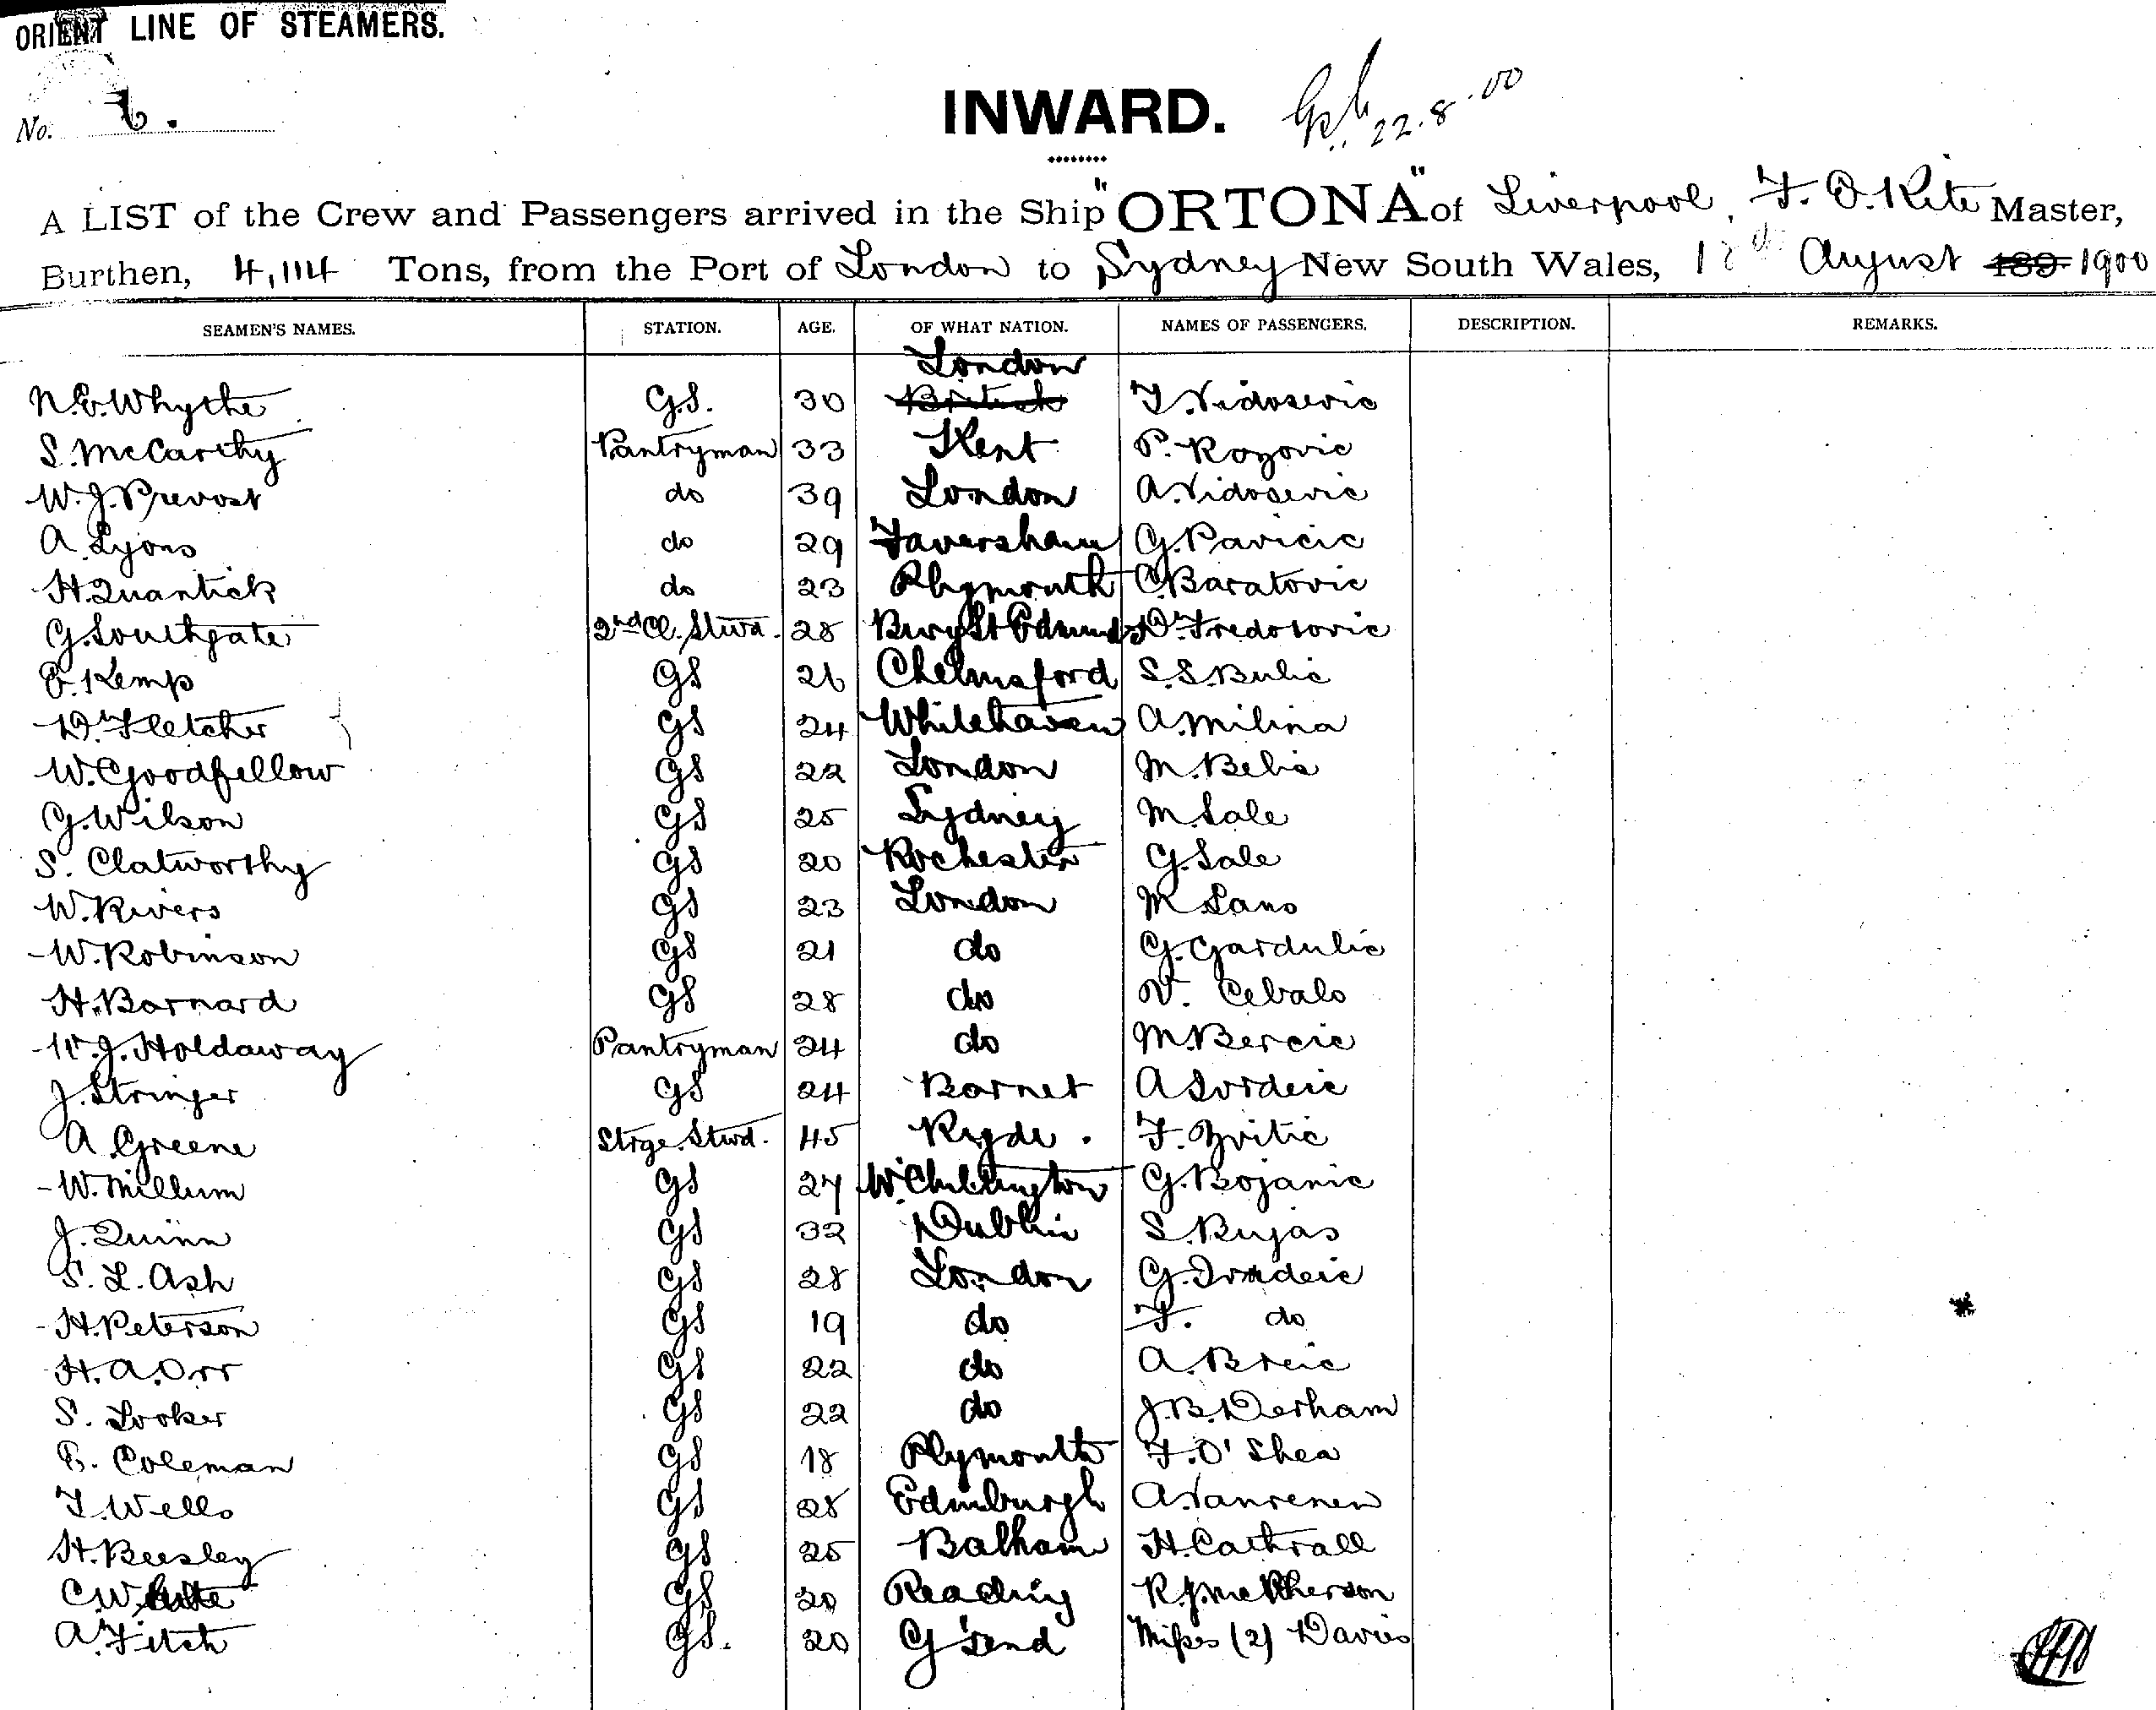 ORIENT LINE OF STEAMERS.
No. 6.
INWARD. 22.8.00
A LIST of the Crew and Passengers arrived in the Ship "ORTONA" of Liverpool, F. O. Kite Master,
Burthen, 4,114 Tons, from the Port of London to Sydney New South Wales, August 189 1900
SEAMEN'S NAMES. STATION. AGE. OF WHAT NATION. NAMES OF PASSENGERS. DESCRIPTION. REMARKS.
London
N.E. Whythe G.S. 30 British T. Vidosevic
S. McCarthy Pantryman 33 Kent P. Rozovic
W.J. Prevost do 39 London A. Vidosevic
A. Lyons do 29 Faversham G. Pavicic
H. Quantick do 23 Plymouth C. Baratovic
G. Southgate 2nd Cl. Stwd. 28 Bury St Edmunds D. Fredotovic
E. Kemp GS 26 Chelmsford S.S. Bulic
D. Fletcher GS 24 Whitehaven A. Milina
W. Goodfellow GS 22 London M. Belic
G. Wilson GS 25 Sydney M. Sale
S. Clatworthy GS 20 Rochester G. Sale
W. Rivers GS 23 London M Sano
W. Robinson GS 21 do G. Gardulic
H. Barnard GS 28 do V. Cebalo
W.J. Holdaway Pantryman 24 do M. Bercic
J. Stringer GS 24 Barnet A Surdeic
A. Greene Strge. Stwd. 45 Ryde. F. Zvitic
W. Millum GS 27 W. Chillington G. Bojanic
J. Quinn GS 32 Dublin S. Bujas
S. L. Ash GS 28 London G.
H. Peterson GS 19 do F. do
H. A. Orr GS 22 do A. Breic
S. Looker GS 22 do J.B. Derham
E. Coleman GS 18 Plymouth F. O'Shea
T. Wells GS 28 Edinburgh A. Vanrenen
H. Beesley GS 25 Balham H. Cathrall
C. White GS 20 Reading R.J. McPherson
A. Fitch GS. 20 G'send Misses (2) Davies